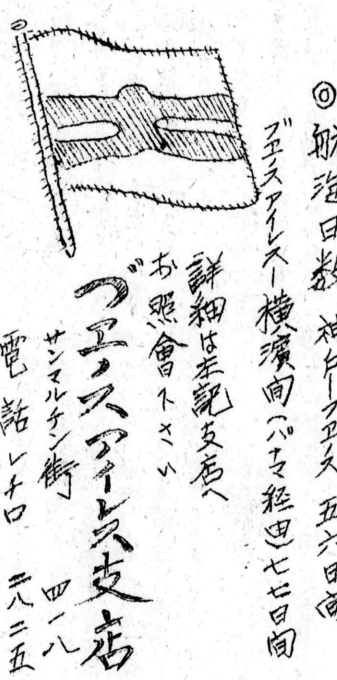 ◎航海日数 神戸ーブエノス 五六日間
ブエノスアイレスー横濱間(パナマ経由)七七日間
詳細は左記支店へ
お照會下さい
ブエノスアイレス支店
サンマルチン街 四一八
電話レチロ 二八二五